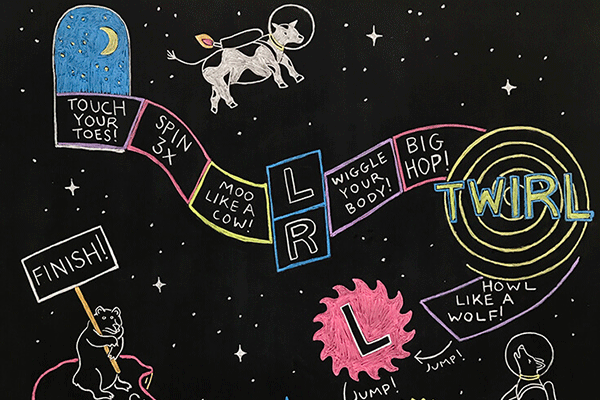 TOUCH
YOUR
TOES!
SPIN
3X
MOO
LIKE A
COW!
L
R
WIGGLE
YOUR
BODY!
BIG
HOP!
TWIRL
HOWL
LIKE A
WOLF!
JUMP!
L
JUMP!
FINISH!